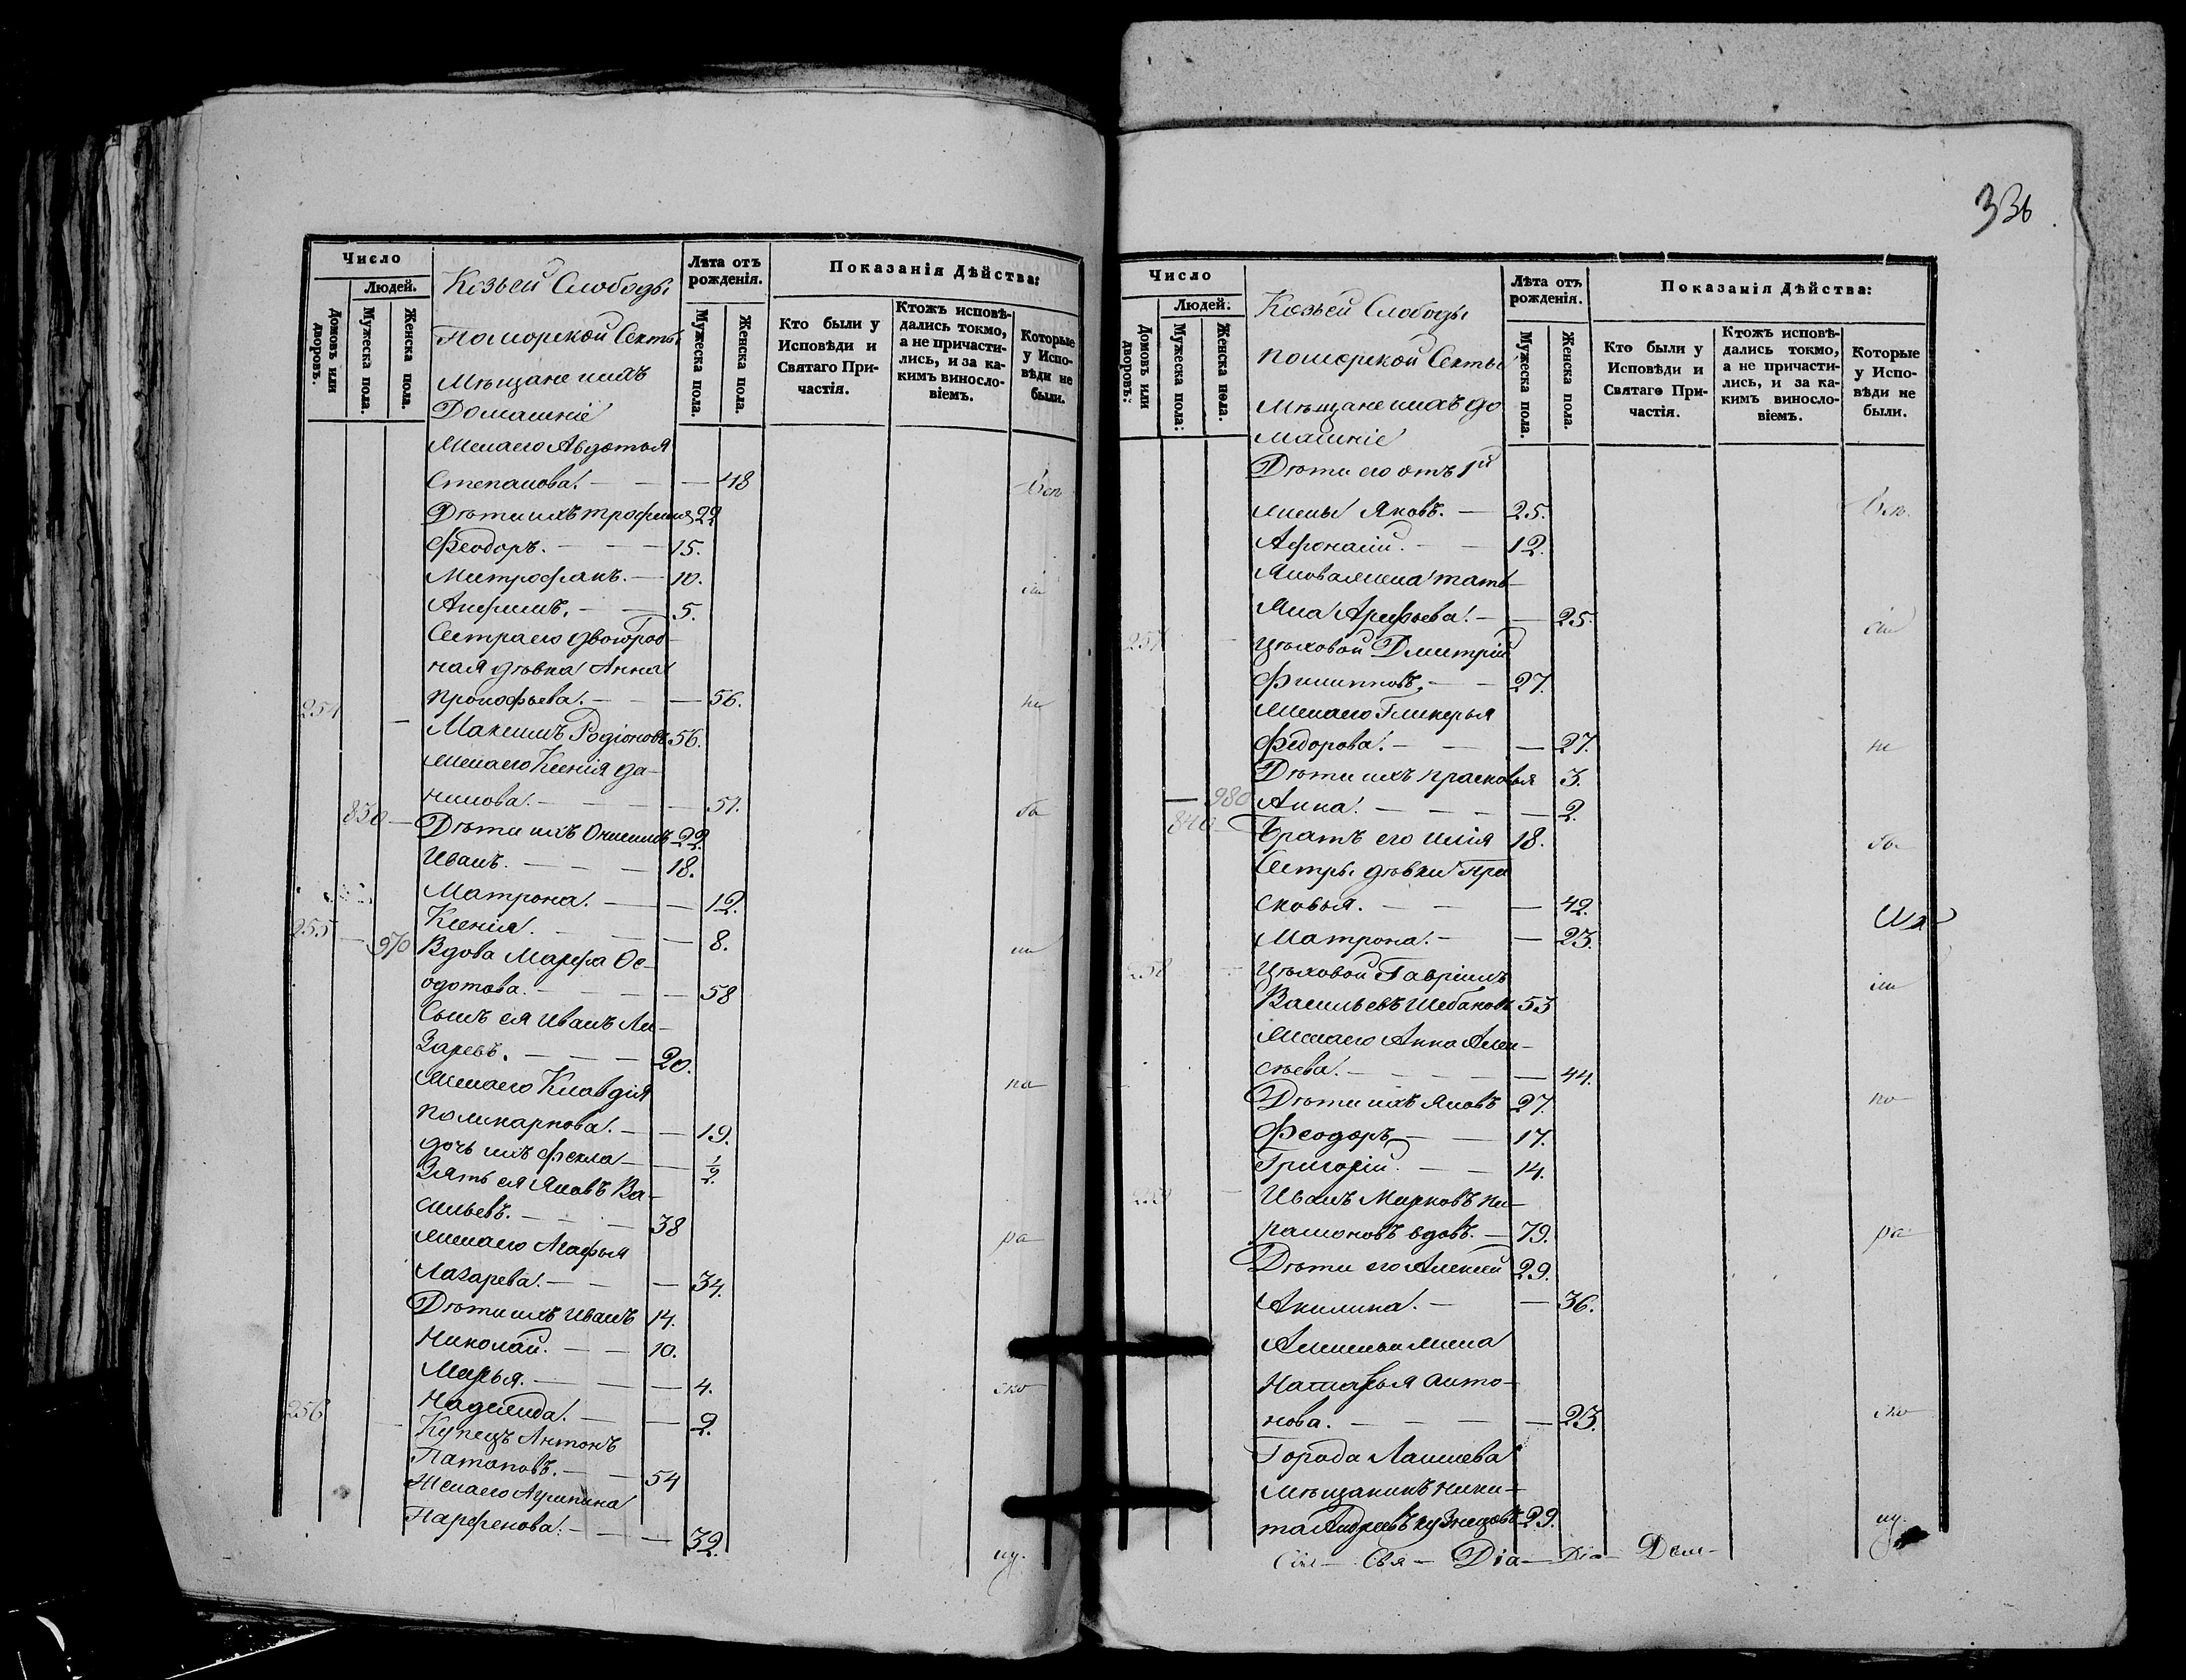 Число
Людей.
Домовъ или дворовъ.
Мужеска пола.
Женска пола.
Козьей Слободы
Поморской Секты
Мѣщане и ихъ
Домашніе
Лѣта отъ рожденія.
Мужеска пола.
Женска пола.
Показанія Дѣйства:
Кто были у Исповѣди и Святаго Причастія.
Ктожъ исповѣдались токмо, а не причастились, и за какимъ винословіемъ.
Которые у Исповѣди не были.
Жена его Авдотья
Степанова. — — 48
Дѣти ихъ Трофимъ 22
Феодоръ. — 15.
Митрофанъ. — 10.
Анфимъ. — 5.
Сестра его двоюрод-
ная дѣвка Анна
Прокофьева. — — 56.
254 Максимъ Родіоновъ 56.
Жена его Ксенія Да-
нилова. — — 51.
830 Дѣти ихъ Онисимъ 22.
Иванъ. — 18.
Матрона. — — 12.
Ксенія. — — 8.
255 970 Вдова Марфа Ѳе-
одотова. — — 58
Сынъ ея Иванъ Ла-
заревъ. — 20.
Жена его Клавдія
Поликарпова. — — 19.
Дочь ихъ Фекла — 1/2.
Зять ея Яковъ Ва-
сильевъ. — 38
Жена его Агафья
Лазарева. — — 34.
Дѣти ихъ Иванъ 14.
Николай. — 10.
Марья. — — 4.
Надежда. — — 2.
256 Купецъ Антонъ
Патаповъ. — 54
Жена его Агрипина
Парфенова. — — 32.
Всѣ
сіи
не
бы
ли
по
ра
ско
лу.
336
Число
Людей.
Домовъ или дворовъ.
Мужеска пола.
Женска пола.
Козьей Слободы
Поморской Секты
Мѣщане и ихъ до
машніе
Лѣта отъ рожденія.
Мужеска пола.
Женска пола.
Показанія Дѣйства:
Кто были у Исповѣди и Святаго Причастія.
Ктожъ исповѣдались токмо, а не причастились, и за какимъ винословіемъ.
Которые у Исповѣди не были.
Дѣти его отъ 1й
жены Яковъ. — 25.
Афонасій. — 12.
Якова жена Тать-
яна Арефьева. — — 25.
257 Цѣховой Дмитрій
Филипповъ. — 27.
Жена его Гликерья
Федорова. — — 27.
Дѣти ихъ Прасковья 3.
980 Анна. — — 2.
840 Братъ его Илія 18.
Сестры дѣвки Пра
сковья. — — 42.
Матрона. — — 23.
258 Цѣховой Гавріилъ
Васильевъ Шебановъ 53
Жена его Анна Алек-
сѣева. — — 44.
Дѣти ихъ Яковъ 27.
Феодоръ — 17.
Григорій. — 14.
Иванъ Марковъ
вдовъ. — 79.
Дѣти его Алексей 29.
Акилина. — — 36.
жена
Наталья Анто-
нова. — — 23.
Города Лаишева
мѣщанинъ Ники-
та Андреевъ Кузнецовъ 29.
Всѣ
сіи
не
бы
ли
по
ра
ско
лу.
Свя — Діа — Діа —